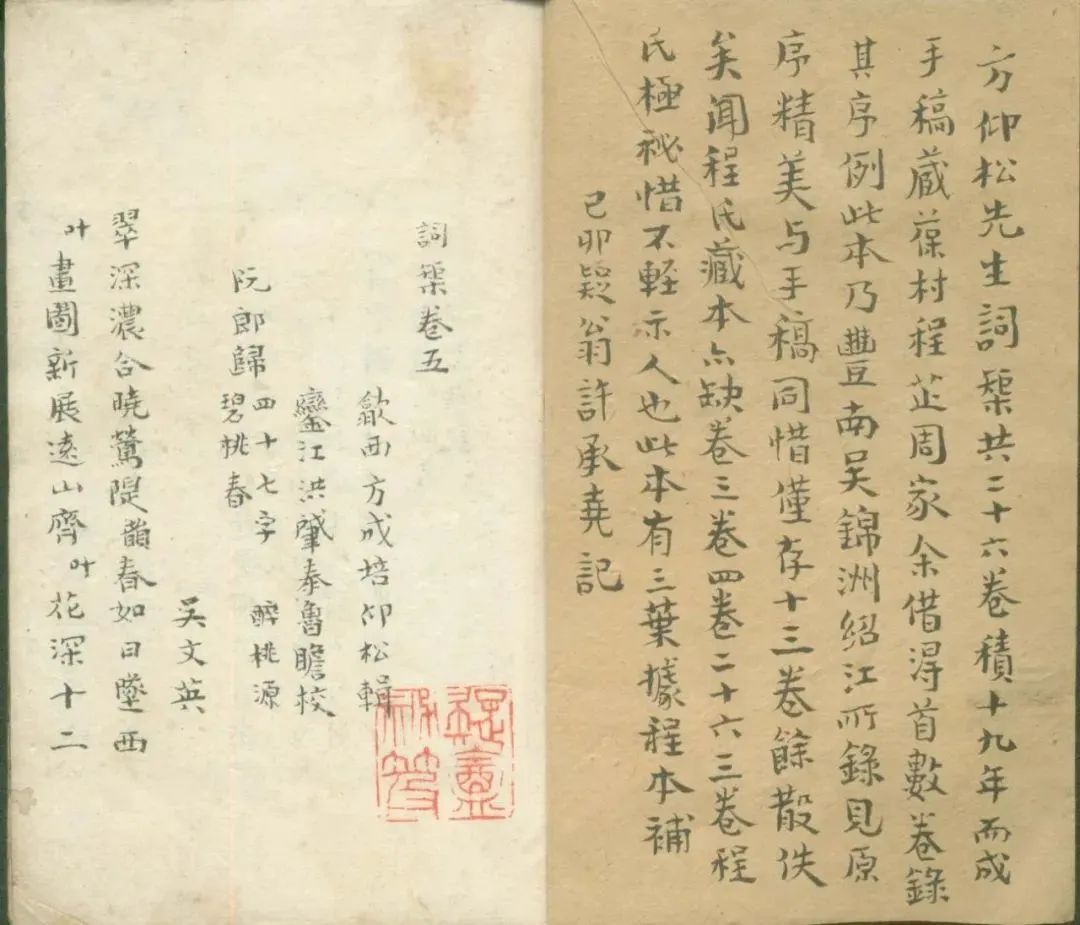 方仰松先生詞榘共二十六卷積十九年而成
手稿藏葆村程芷周家余借得首數卷錄
其序例此本乃豐南吴錦洲紹江所錄見原
序精美与手稿同惜僅存十三卷餘散佚
矣闻程氏藏本亦缺卷三卷四卷二十六三卷程
氏極祕惜不輕示人也此本有三葉據程本補
已卯疑翁許承堯記
詞榘卷五
歙西方成培仰松輯
鑾江洪肇奉魯瞻校
阮郎歸 四十七字 醉桃源
碧桃春
吴文英
翠深濃合曉鶯隄韻春如日墜西
叶畫圖新展遠山齊叶花深十二